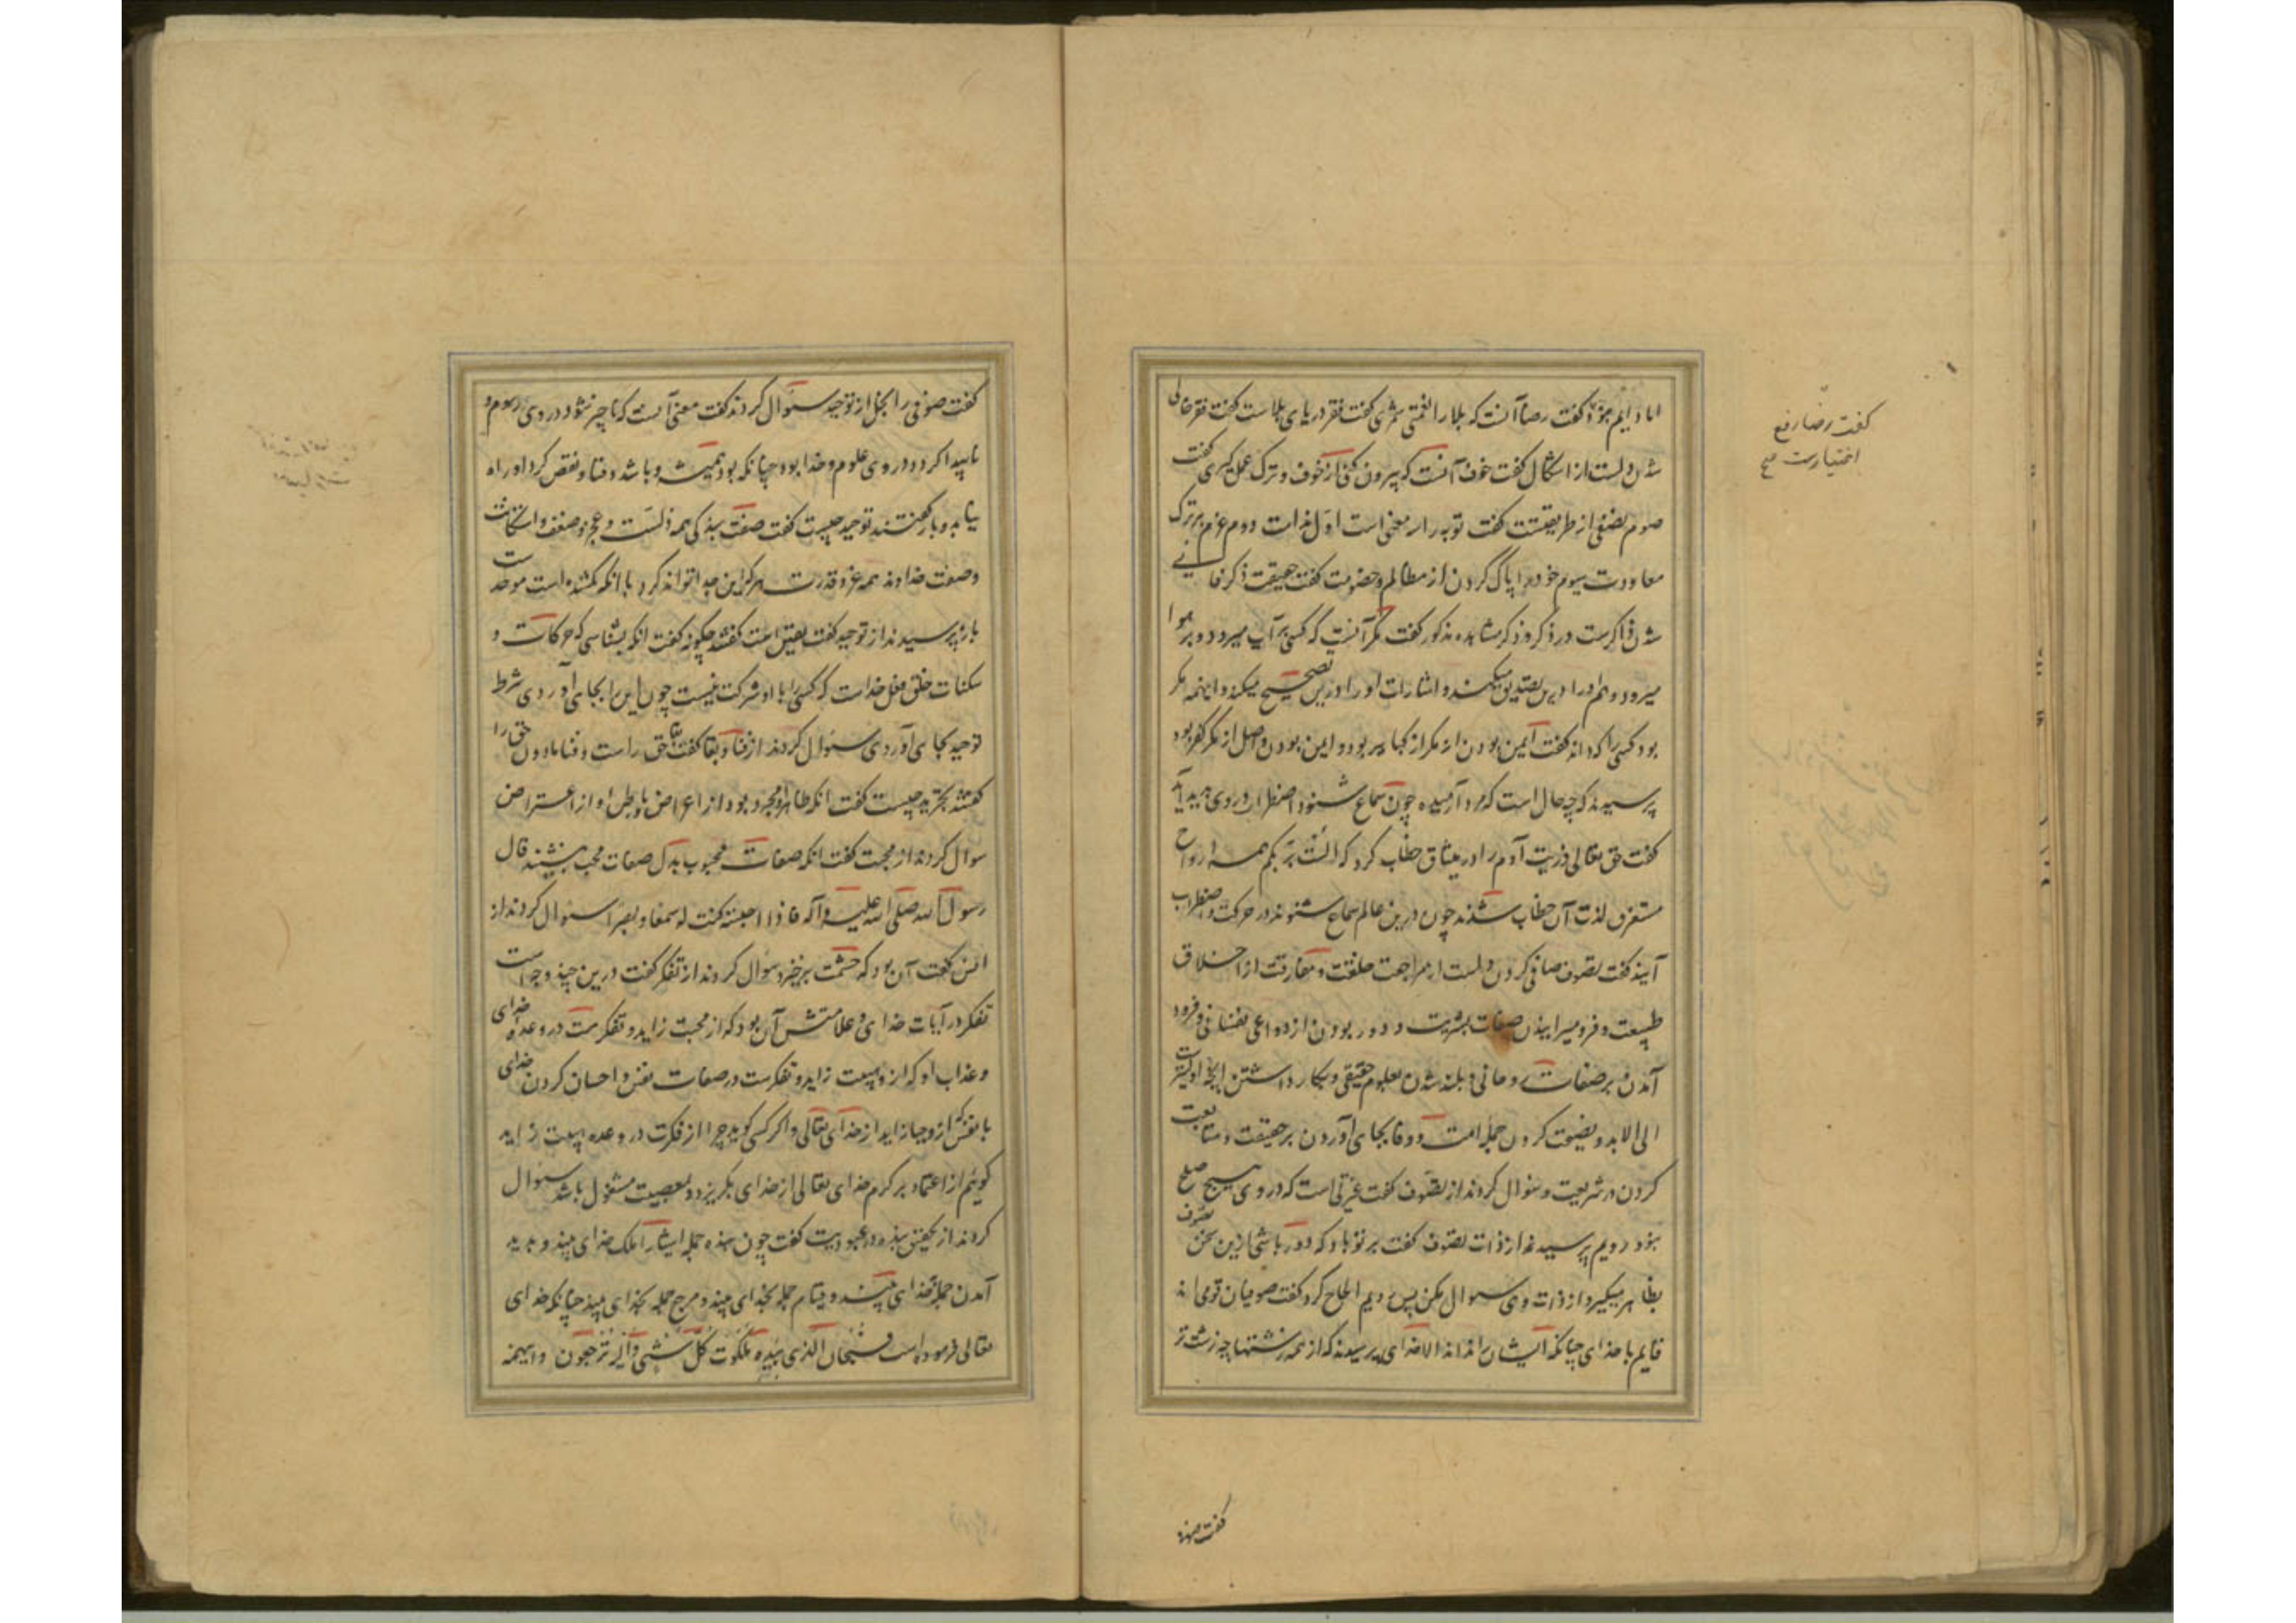 اما دایم بجوید گفت رضا آنست که بلا را نعمتی شمری گفت فقر دریای بلاست گفت فقر خالی
شدن دلست از اشکال گفت خوف آنست که بیرون کنی از خوف و ترک عمل گیری گفت
صوم نصفی از طریقتست گفت توبه را سه معنی است اول ندامت دوم عزم بر ترک
معاودت سیوم خود را پاک کردن از مظالم و خصومت گفت حقیقت ذکر فانی
شدن ذاکرست در ذکر و ذکر در مشاهده مذکور گفت مکر آنست که کسی بر آب میرود و بر هوا
میرود و همه او را درین تصدیق میکنند و اشارات او را درین تصحیح میکنند و این همه مکر
بود کسی را که داند گفت ایمن بودن از مکر از کبایر بود و ایمن بودن واصل از مکر کفر بود
پرسیدند که چه حال است که مرد آرمیده چون سماع شنود اضطراب در وی پدید آید
گفت حق تعالی ذریت آدم را در میثاق خطاب کرد که الست بربکم همه ارواح
مستغرق لذت آن خطاب شدند چون درین عالم سماع شنوند در حرکت و اضطراب
آیند گفت تصوف صافی کردن دلست از مراجعت خلقت و مفارقت از اخلاق
طبیعت و فرو میرانیدن صفات بشریت و دور بودن از دواعی نفسانی و فرود
آمدن بر صفات روحانی و بلند شدن بعلوم حقیقی و بکار داشتن آنچه اولیتر است
الی الابد و نصیحت کردن جمله امت و وفا بجای آوردن بر حقیقت و متابعت
کردن در شریعت و سوال کردند از تصوف گفت عنوتی است که در وی هیچ صلح
نبود رویم پرسید از ذات تصوف گفت بر تو باد که دور باشی ازین سخن تصوف
بظاهر میگیر و از ذات وی سوال مکن پس رویم الحاح کرد گفت صوفیان قومی اند
قایم با خدای چنانکه ایشان را نداند الا خدای پرسیدند که از همه زشتیها چه زشت تر
گفت رضا رفع
اختیارست صح
گفت صوفی
گفت صوفی را بخل از توحید سوال کردند گفت معنی آنست که ناچیز شود در وی رسوم و
ناپیدا گردد در وی علوم و خدا بود چنانکه بود همیشه و باشد و فنا و نقص گرد او راه
نیابد و باز گفتند توحید چیست گفت صفت بندگی همه ذلست و عجز و ضعف و استکانت
و صفت خداوند همه عز و قدرت هر که این جدا تواند کرد با آنکه گم شده است موحد است
باز پرسیدند از توحید گفت یقین است گفتند چگونه گفت آنکه بشناسی که حرکات و
سکنات خلق فعل خداست که کسی را با او شرکت نیست چون این را بجای آوردی شرط
توحید بجای آوردی سوال کردند از فنا و بقا گفت بقا حق راست و فنا مادون حق را
گفتند تجرید چیست گفت آنکه ظاهر او مجرد بود از اعراض و باطن او از اعتراض
سوال کردند از محبت گفت آنکه صفات محبوب بدل صفات محب بنشیند قال
رسول الله صلی الله علیه و آله فاذا احببته کنت له سمعا و بصرا سوال کردند از
انس گفت آن بود که حشمت برخیزد سوال کردند از تفکر گفت درین چند وجه است
تفکر در آیات خدای و علامتش آن بود که از محبت زاید و تفکرست در وعده خدای
و عذاب او که از وی هیبت زاید و تفکرست در صفات نفس و احسان کردن خدای
با نفس که از وی حیا زاید از خدای تعالی و اگر کسی گوید چرا از فکرت در وعده هیبت زاید
گوئیم از اعتماد بر کرم خدای تعالی از خدای بگریزد و بمعصیت مشغول باشد سوال
کردند از تحقیق بنده در عبودیت گفت چون بنده جمله اشیا را ملک خدای بیند و پدید
آمدن جمله از خدای بیند و قیام جمله بخدای بیند و مرجع جمله بخدای بیند چنانکه خدای
تعالی فرموده است فسبحان الذی بیده ملکوت کل شیء والیه ترجعون و این همه